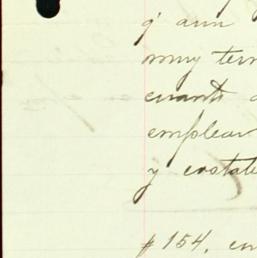 q' aun
muy ter
cuanto
emplear
y costate
$154. en